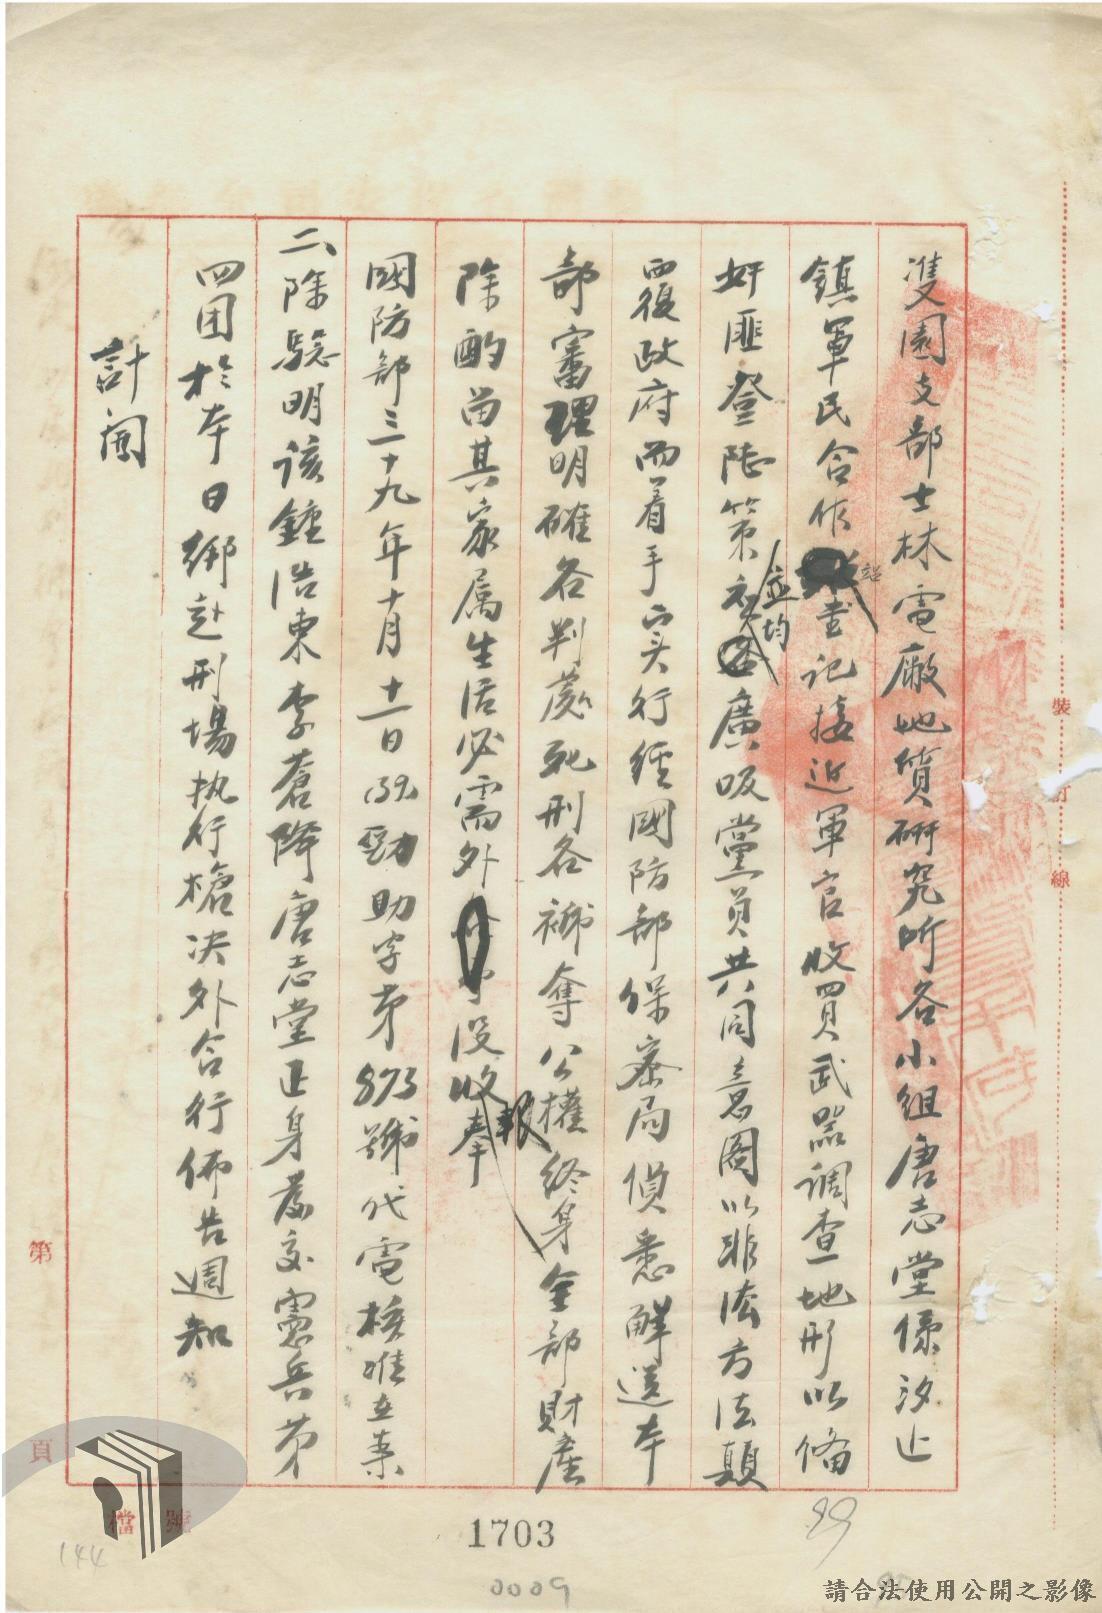 雙園支部士林電廠地質研究所各小組唐志堂係汐止
鎮軍民合作站書記接近軍官收買武器調查地形以備
奸匪登陸策應並均廣吸黨員共同意圖以非法方法顛
覆政府而着手实行經國防部保密局偵悉解送本
部審理明確各判處死刑各褫奪公權終身全部財產
除酌留其家属生活必需外沒收報奉
國防部三十九年十月十一日勁助字第873號代電核准在案
二、除驗明該鍾浩東李蒼降唐志堂正身發交憲兵第
四团於本日綁赴刑場执行槍决外合行佈告週知
計開
裝
訂
線
第
頁
檔
號
1703
0009
99
144
請合法使用公開之影像